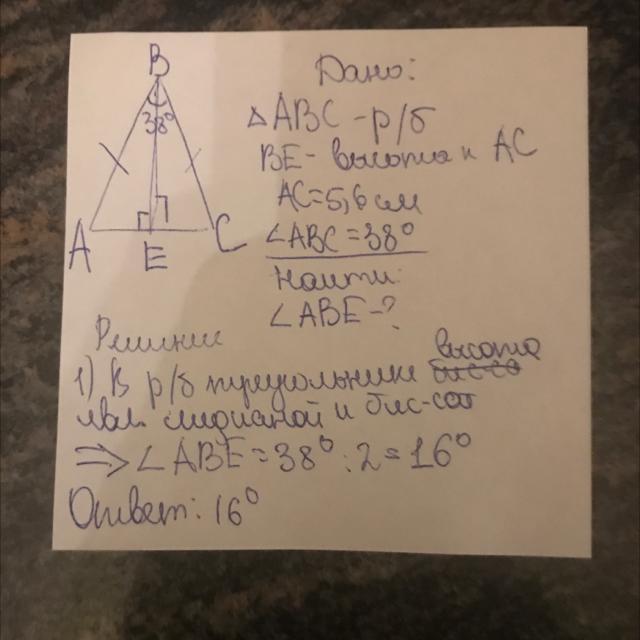 B
38°
A
E
C
Дано:
△ABC - р/б
BE - высота к AC
AC=5,6 см
∠ABC=38°
Найти:
∠ABE-?
Решение
1) В р/б треугольнике высота
явл. медианой и бис-сой
⇒ ∠ABE = 38° : 2 = 16°
Ответ: 16°